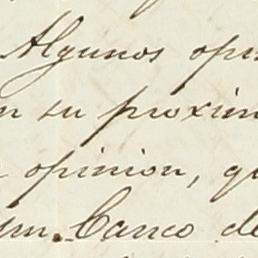 Algunos opi
n su proxim
opinion, qu
Banco de